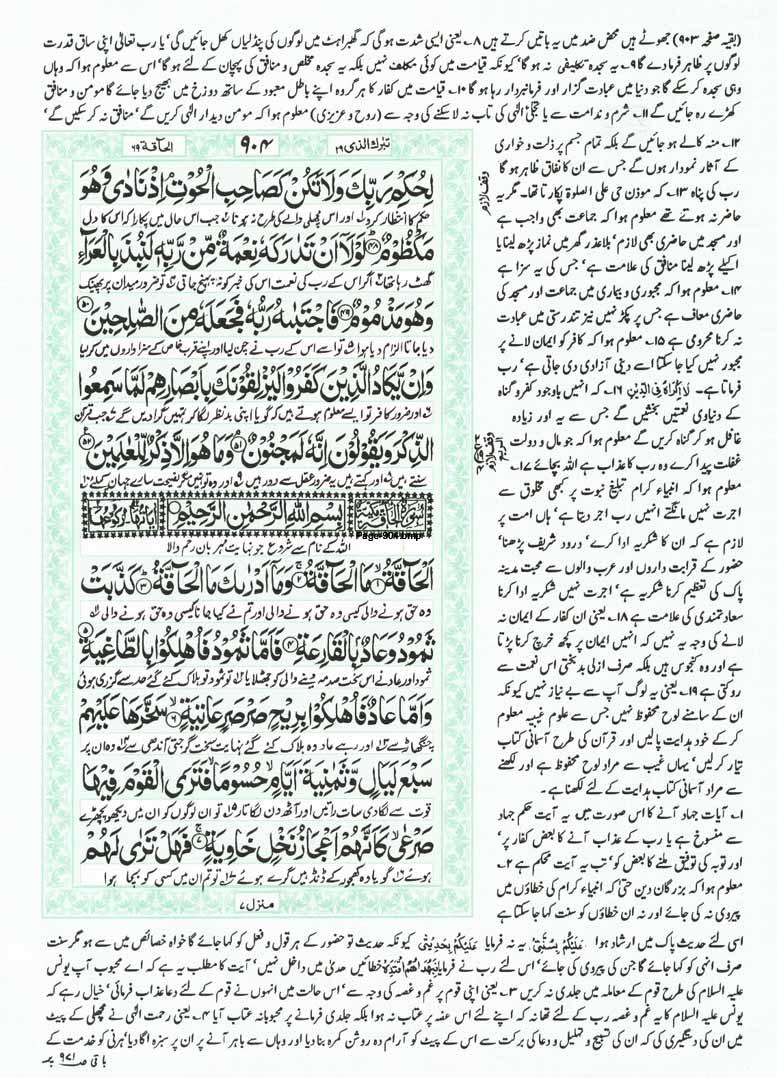 (بقیہ صفحہ ۹۰۳) جھوٹے ہیں محض ضد میں یہ باتیں کرتے ہیں ۸۔ یعنی ایسی شدت ہوگی کہ گھبراہٹ میں لوگوں کی پنڈلیاں کھل جائیں گی' یا رب تعالٰی اپنی ساق قدرت
لوگوں پر ظاہر فرما دے گا ۹۔ یہ سجدہ تکلیفی نہ ہو گا' کیونکہ قیامت میں کوئی مکلف نہیں بلکہ یہ سجدہ مخلص و منافق کی پہچان کے لئے ہو گا' اس سے معلوم ہوا کہ وہاں
وہی سجدہ کر سکے گا جو دنیا میں عبادت گزار اور فرمانبردار رہا ہو گا ۱۰۔ قیامت میں کفار کا ہر گروہ اپنے باطل معبود کے ساتھ دوزخ میں بھیج دیا جائے گا مومن و منافق
کھڑے رہ جائیں گے ۱۱۔ شرم و ندامت سے یا تجلی الٰہی کی تاب نہ لا سکنے کی وجہ سے (روح و عزیزی) معلوم ہوا کہ مومن دیدار الٰہی کریں گے' منافق نہ کر سکیں گے'
تبٰرک الذی ۲۹
۹۰۴
الحآقة ۶۹
لِحُكْمِ رَبِّكَ وَلَا تَكُنْ كَصَاحِبِ الْحُوْتِ اِذْ نَادٰى وَهُوَ
حکم کا انتظار کرو اور اس مچھلی والے کی طرح نہ ہونا جب اس حال میں پکارا کہ اس کا دل
مَكْظُوْمٌ ﴿۴۸﴾ لَوْلَاۤ اَنْ تَدٰرَكَهٗ نِعْمَةٌ مِّنْ رَّبِّهٖ لَنُبِذَ بِالْعَرَآءِ
گھٹ رہا تھا اگر اس کے رب کی نعمت اس کی خبر کو نہ پہنچ جاتی تو ضرور میدان پر پھینک
وَهُوَ مَذْمُوْمٌ ﴿۴۹﴾ فَاجْتَبٰىهُ رَبُّهٗ فَجَعَلَهٗ مِنَ الصّٰلِحِيْنَ ﴿۵۰﴾
دیا جاتا الزام دیا ہوا تو اسے اس کے رب نے چن لیا اور اپنے قرب خاص کے سزاواروں میں کر لیا
وَاِنْ يَّكَادُ الَّذِيْنَ كَفَرُوْا لَيُزْلِقُوْنَكَ بِاَبْصَارِهِمْ لَمَّا سَمِعُوا
اور ضرور کافر تو ایسے معلوم ہوتے ہیں کہ گویا اپنی بد نظر لگا کر تمہیں گرا دیں گے جب قرآن
الذِّكْرَ وَيَقُوْلُوْنَ اِنَّهٗ لَمَجْنُوْنٌ ﴿۵۱﴾ وَمَا هُوَ اِلَّا ذِكْرٌ لِّلْعٰلَمِيْنَ ﴿۵۲﴾
سنتے ہیں اور کہتے ہیں یہ ضرور عقل سے دور ہیں اور وہ تو نہیں مگر نصیحت سارے جہان کے لئے
بِسْمِ اللّٰهِ الرَّحْمٰنِ الرَّحِيْمِ
Page-904.bmp
اللہ کے نام سے شروع جو نہایت مہربان رحم والا
اَلْحَآقَّةُ ﴿۱﴾ مَا الْحَآقَّةُ ﴿۲﴾ وَمَاۤ اَدْرٰىكَ مَا الْحَآقَّةُ ﴿۳﴾ كَذَّبَتْ
وہ حق ہونے والی کیسی وہ حق ہونے والی اور تم نے کیا جانا کیسی وہ حق ہونے والی
ثَمُوْدُ وَعَادٌۢ بِالْقَارِعَةِ ﴿۴﴾ فَاَمَّا ثَمُوْدُ فَاُهْلِكُوْا بِالطَّاغِيَةِ ﴿۵﴾
ثمود اور عاد نے اس سخت صدمہ دینے والی کو جھٹلایا تو ثمود تو ہلاک کئے گئے حد سے گزری ہوئی
وَاَمَّا عَادٌ فَاُهْلِكُوْا بِرِيْحٍ صَرْصَرٍ عَاتِيَةٍ ﴿۶﴾ سَخَّرَهَا عَلَيْهِمْ
چنگھاڑ سے اور رہے عاد وہ ہلاک کئے گئے نہایت سخت گرجتی آندھی سے وہ ان پر
سَبْعَ لَيَالٍ وَّثَمٰنِيَةَ اَيَّامٍ حُسُوْمًا فَتَرَى الْقَوْمَ فِيْهَا
قوت سے لگا دی سات راتیں اور آٹھ دن لگاتار تو ان لوگوں کو ان میں دیکھو بچھڑے
صَرْعٰى كَاَنَّهُمْ اَعْجَازُ نَخْلٍ خَاوِيَةٍ ﴿۷﴾ فَهَلْ تَرٰى لَهُمْ
ہوئے گویا وہ کھجور کے ڈنڈ ہیں گرے ہوئے تو تم ان میں کسی کو بچا ہوا
منزل ۷
وقف لازم
۱۲۔ منہ کالے ہو جائیں گے بلکہ تمام جسم پر ذلت و خواری
کے آثار نمودار ہوں گے جس سے ان کا نفاق ظاہر ہو گا
رب کی پناہ ۱۳۔ کہ موذن حی علی الصلوۃ پکارتا تھا۔ مگر یہ
حاضر نہ ہوتے تھے معلوم ہوا کہ جماعت بھی واجب ہے
اور مسجد میں حاضری بھی لازم' بلاعذر گھر میں نماز پڑھ لینا یا
اکیلے پڑھ لینا منافق کی علامت ہے' جس کی یہ سزا ہے
۱۴۔ معلوم ہوا کہ مجبوری و بیماری میں جماعت اور مسجد کی
حاضری معاف ہے جس پر پکڑ نہیں نیز تندرستی میں عبادت
نہ کرنا محرومی ہے ۱۵۔ معلوم ہوا کہ کافر کو ایمان لانے پر
مجبور نہیں کیا جا سکتا اسے دینی آزادی دی جاتی ہے' رب
فرماتا ہے۔ لَاۤ اِكْرَاهَ فِى الدِّيْنِ ۱۶۔ کہ انہیں باوجود کفر و گناہ
کے دنیاوی نعمتیں بخشیں گے جس سے یہ اور زیادہ
غافل ہو کر گناہ کریں گے معلوم ہوا کہ جو مال و دولت
غفلت پیدا کرے وہ رب کا عذاب ہے اللہ بچائے ۱۷۔
معلوم ہوا کہ انبیاء کرام تبلیغ نبوت پر کبھی مخلوق سے
اجرت نہیں مانگتے انہیں رب اجر دیتا ہے' ہاں امت پر
لازم ہے کہ ان کا شکریہ ادا کرے' درود شریف پڑھنا'
حضور کے قرابت داروں اور عرب والوں سے محبت مدینہ
پاک کی تعظیم کرنا شکریہ ہے' اجرت نہیں شکریہ ادا کرنا
سعادتمندی کی علامت ہے ۱۸۔ یعنی ان کفار کے ایمان نہ
لانے کی وجہ یہ نہیں کہ انہیں ایمان پر کچھ خرچ کرنا پڑتا
ہے اور وہ کنجوس ہیں بلکہ صرف ازلی بدبختی اس نعمت سے
روکتی ہے ۱۹۔ یعنی یہ لوگ آپ سے بے نیاز نہیں کیونکہ
ان کے سامنے لوح محفوظ نہیں جس سے علوم غیبیہ معلوم
کر کے خود ہدایت پالیں اور قرآن کی طرح آسمانی کتاب
تیار کر لیں' یہاں غیب سے مراد لوح محفوظ ہے اور لکھنے
سے مراد آسمانی کتاب ہدایت کے لئے لکھنا ہے۔
۱۔ آیات جہاد آنے کا اس صورت میں یہ آیت حکم جہاد
سے منسوخ ہے یا رب کے عذاب آنے کا بعض کفار پر'
اور توبہ کی توفیق ملنے کا بعض کو' تب یہ آیت محکم ہے ۲۔
معلوم ہوا کہ بزرگان دین حتٰی کہ انبیاء کرام کی خطاؤں میں
پیروی نہ کی جائے اور نہ ان خطاؤں کو سنت کہا جا سکتا ہے
اسی لئے حدیث پاک میں ارشاد ہوا عَلَيْكُمْ بِسُنَّتِىْ یہ نہ فرمایا عَلَيْكُمْ بِحَدِيْثِىْ کیونکہ حدیث تو حضور کے ہر قول و فعل کو کہا جائے گا خواہ خصائص میں سے ہو مگر سنت
صرف انہی کو کہا جائے گا جن کی پیروی کی جائے' اس لئے رب نے فرمایا فَبِهُدٰىهُمُ اقْتَدِهْ خطائیں ھدی میں داخل نہیں' آیت کا مطلب یہ ہے کہ اے محبوب آپ یونس
علیہ السلام کی طرح قوم کے معاملہ میں جلدی نہ کریں ۳۔ یعنی اپنی قوم پر غم و غصہ کی وجہ سے' اس حالت میں انہوں نے قوم کے لئے دعا عذاب فرمائی' خیال رہے کہ
یونس علیہ السلام کا یہ غم و غصہ رب کے لئے تھا نہ کہ اپنے لئے اس غصہ پر عتاب نہ ہوا بلکہ جلدی فرمانے پر محبوبانہ عتاب آیا ۴۔ یعنی رحمت الٰہی نے مچھلی کے پیٹ
میں ان کی دستگیری کی کہ ان کی تسبیح و تہلیل و دعا کی برکت سے اس کے پیٹ کو آرام دہ روشن کمرہ بنا دیا اور وہاں سے باہر آنے پر ان پر سبزہ اگا دیا' ہرنی کو خدمت کے
باقی ص ۹۷۱ پر